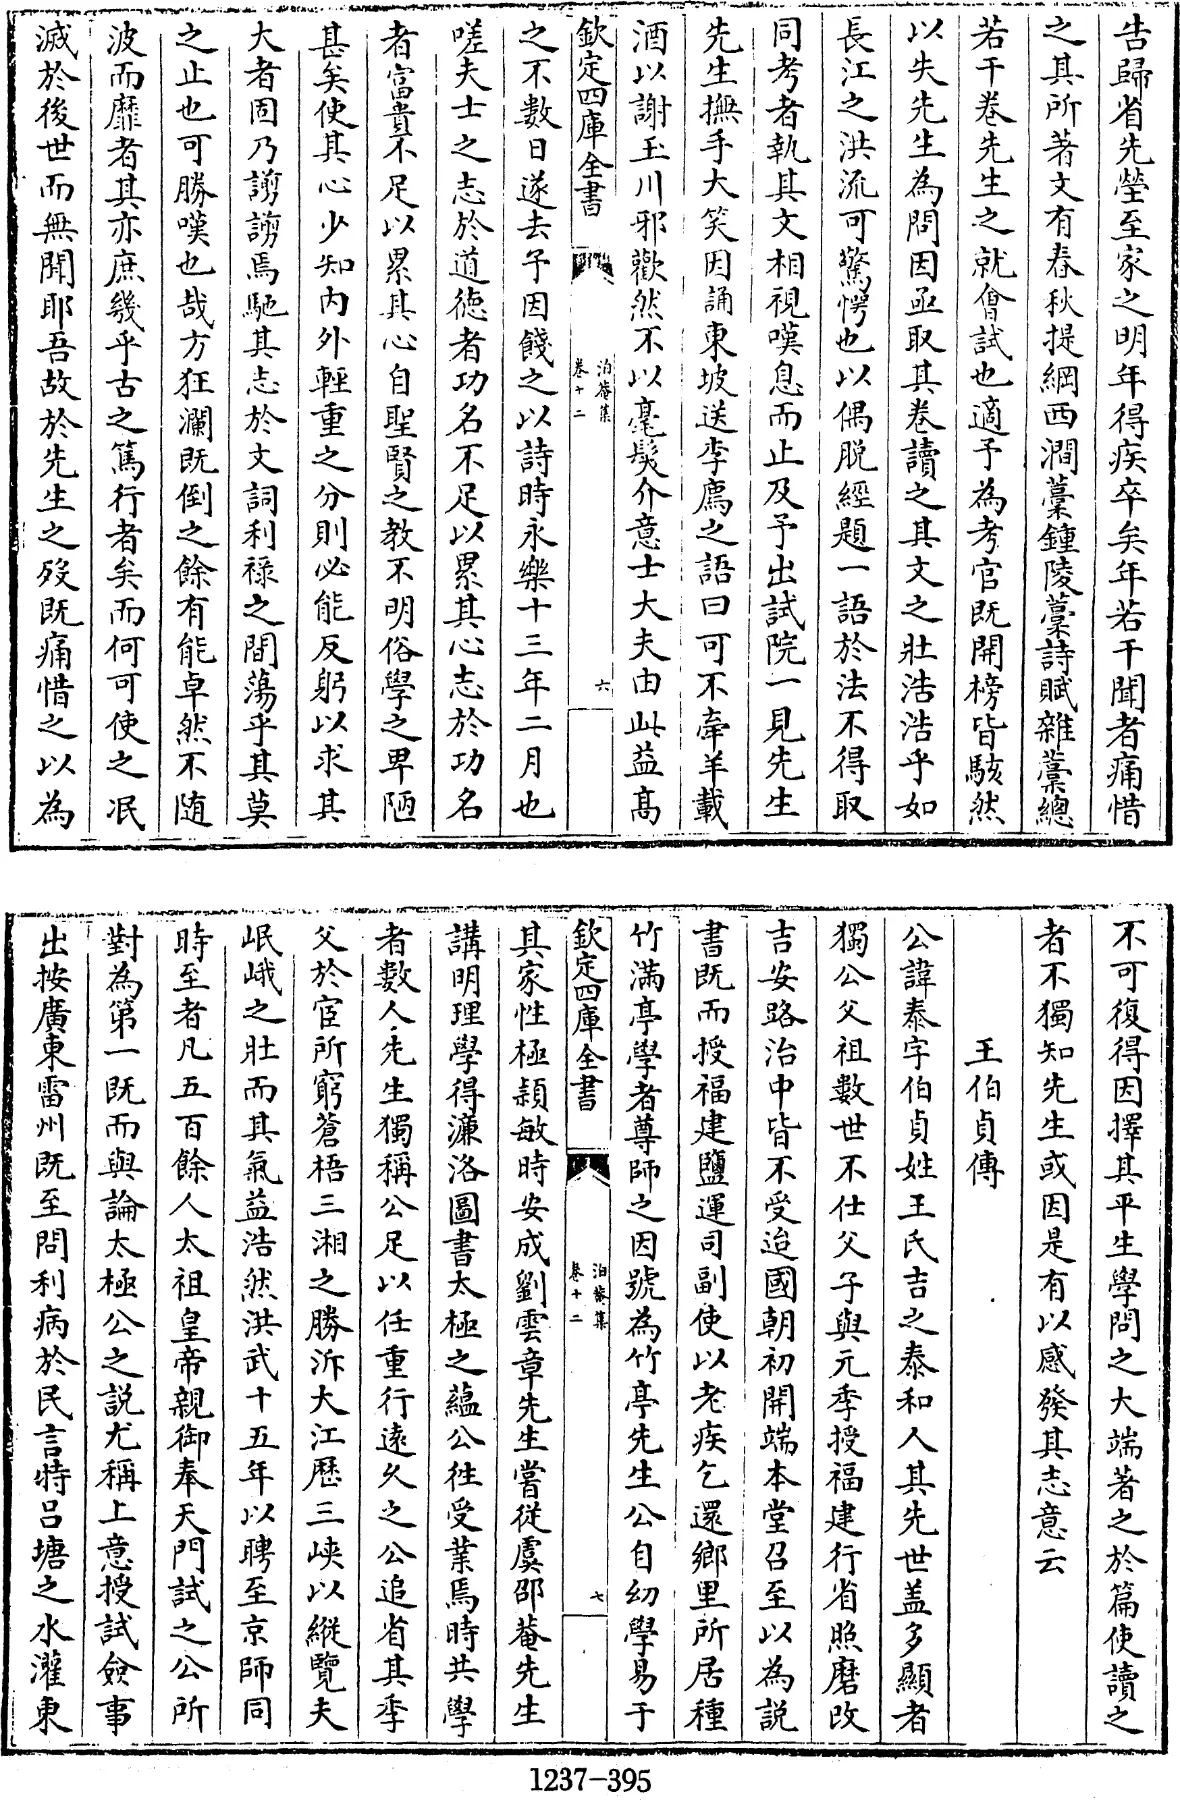 告歸省先塋至家之明年得疾卒矣年若干聞者痛惜
之其所著文有春秋提綱西澗藁鍾陵藁詩賦雜藁總
若干卷先生之就會試也適予為考官既開榜皆駭然
以失先生為問因亟取其卷讀之其文之壯浩浩乎如
長江之洪流可驚愕也以偶脱經題一語於法不得取
同考者執其文相視嘆息而止及予出試院一見先生
先生撫手大笑因誦東坡送李廌之語曰可不牽羊載
酒以謝玉川邪歡然不以毫髮介意士大夫由此益高
欽定四庫全書
泊菴集
卷十二
六
之不數日遂去予因餞之以詩時永樂十三年二月也
嗟夫士之志於道德者功名不足以累其心志於功名
者富貴不足以累其心自聖賢之教不明俗學之卑陋
甚矣使其心少知内外輕重之分則必能反躬以求其
大者固乃謭謭焉馳其志於文詞利祿之間蕩乎其莫
之止也可勝嘆也哉方狂瀾既倒之餘有能卓然不随
波而靡者其亦庶幾乎古之篤行者矣而何可使之泯
滅於後世而無聞耶吾故於先生之歿既痛惜之以為
不可復得因擇其平生學問之大端著之於篇使讀之
者不獨知先生或因是有以感發其志意云
王伯貞傳
公諱泰字伯貞姓王氏吉之泰和人其先世盖多顯者
獨公父祖數世不仕父子與元季授福建行省照磨改
吉安路治中皆不受迨國朝初開端本堂召至以為説
書既而授福建鹽運司副使以老疾乞還鄉里所居種
竹滿亭學者尊師之因號為竹亭先生公自幼學易于
欽定四庫全書
泊菴集
卷十二
七
其家性極穎敏時安成劉雲章先生嘗從虞邵菴先生
講明理學得濂洛圖書太極之蘊公往受業焉時共學
者數人先生獨稱公足以任重行遠久之公追省其季
父於宦所窮蒼梧三湘之勝泝大江歷三峡以縱覽夫
岷峨之壯而其氣益浩然洪武十五年以聘至京師同
時至者凡五百餘人太祖皇帝親御奉天門試之公所
對為第一既而與論太極公之説尤稱上意授試僉事
出按廣東雷州既至問利病於民言特吕塘之水灌東
1237-395